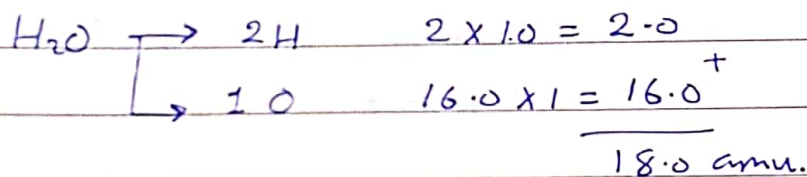 H₂O → 2H 2 × 1.0 = 2.0
→ 1 O 16.0 × 1 = 16.0 +
18.0 amu.